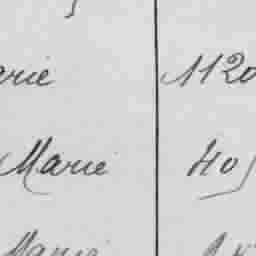 arie 1120
Marie 405
Marie